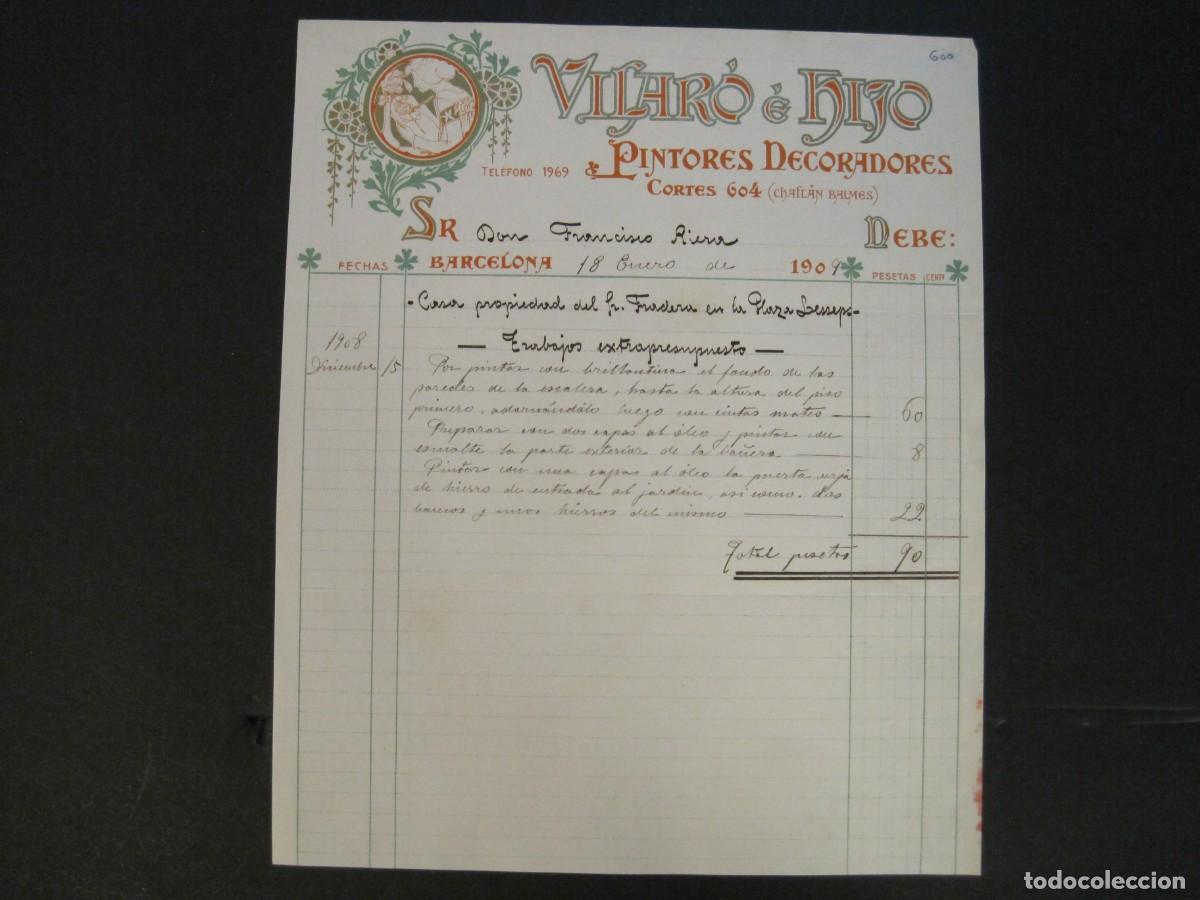 600
VILARÓ é HIJO
TELÉFONO 1969 & PINTORES DECORADORES
CORTES 604 (CHAFLÁN BALMES)
SR Don Francisco Riera DEBE:
FECHAS BARCELONA 18 Enero de 1909 PESETAS CENTS
- Casa propiedad del Sr. Fradera en la Plaza Lesseps -
1908 — Trabajos extrapresupuesto —
Diciembre 15 Por pintar con brillantina el fondo de las
paredes de la escalera, hasta la altura del piso
primero, adornándolo luego con cintas mates — 60
Preparar con dos capas al óleo y pintar con
esmalte la parte exterior de la bañera — 8
Pintar con una capa al óleo la puerta verja
de hierro de entrada al jardín, así como los
bancos y unos hierros del mismo — 22
Total pesetas 90
todocoleccion